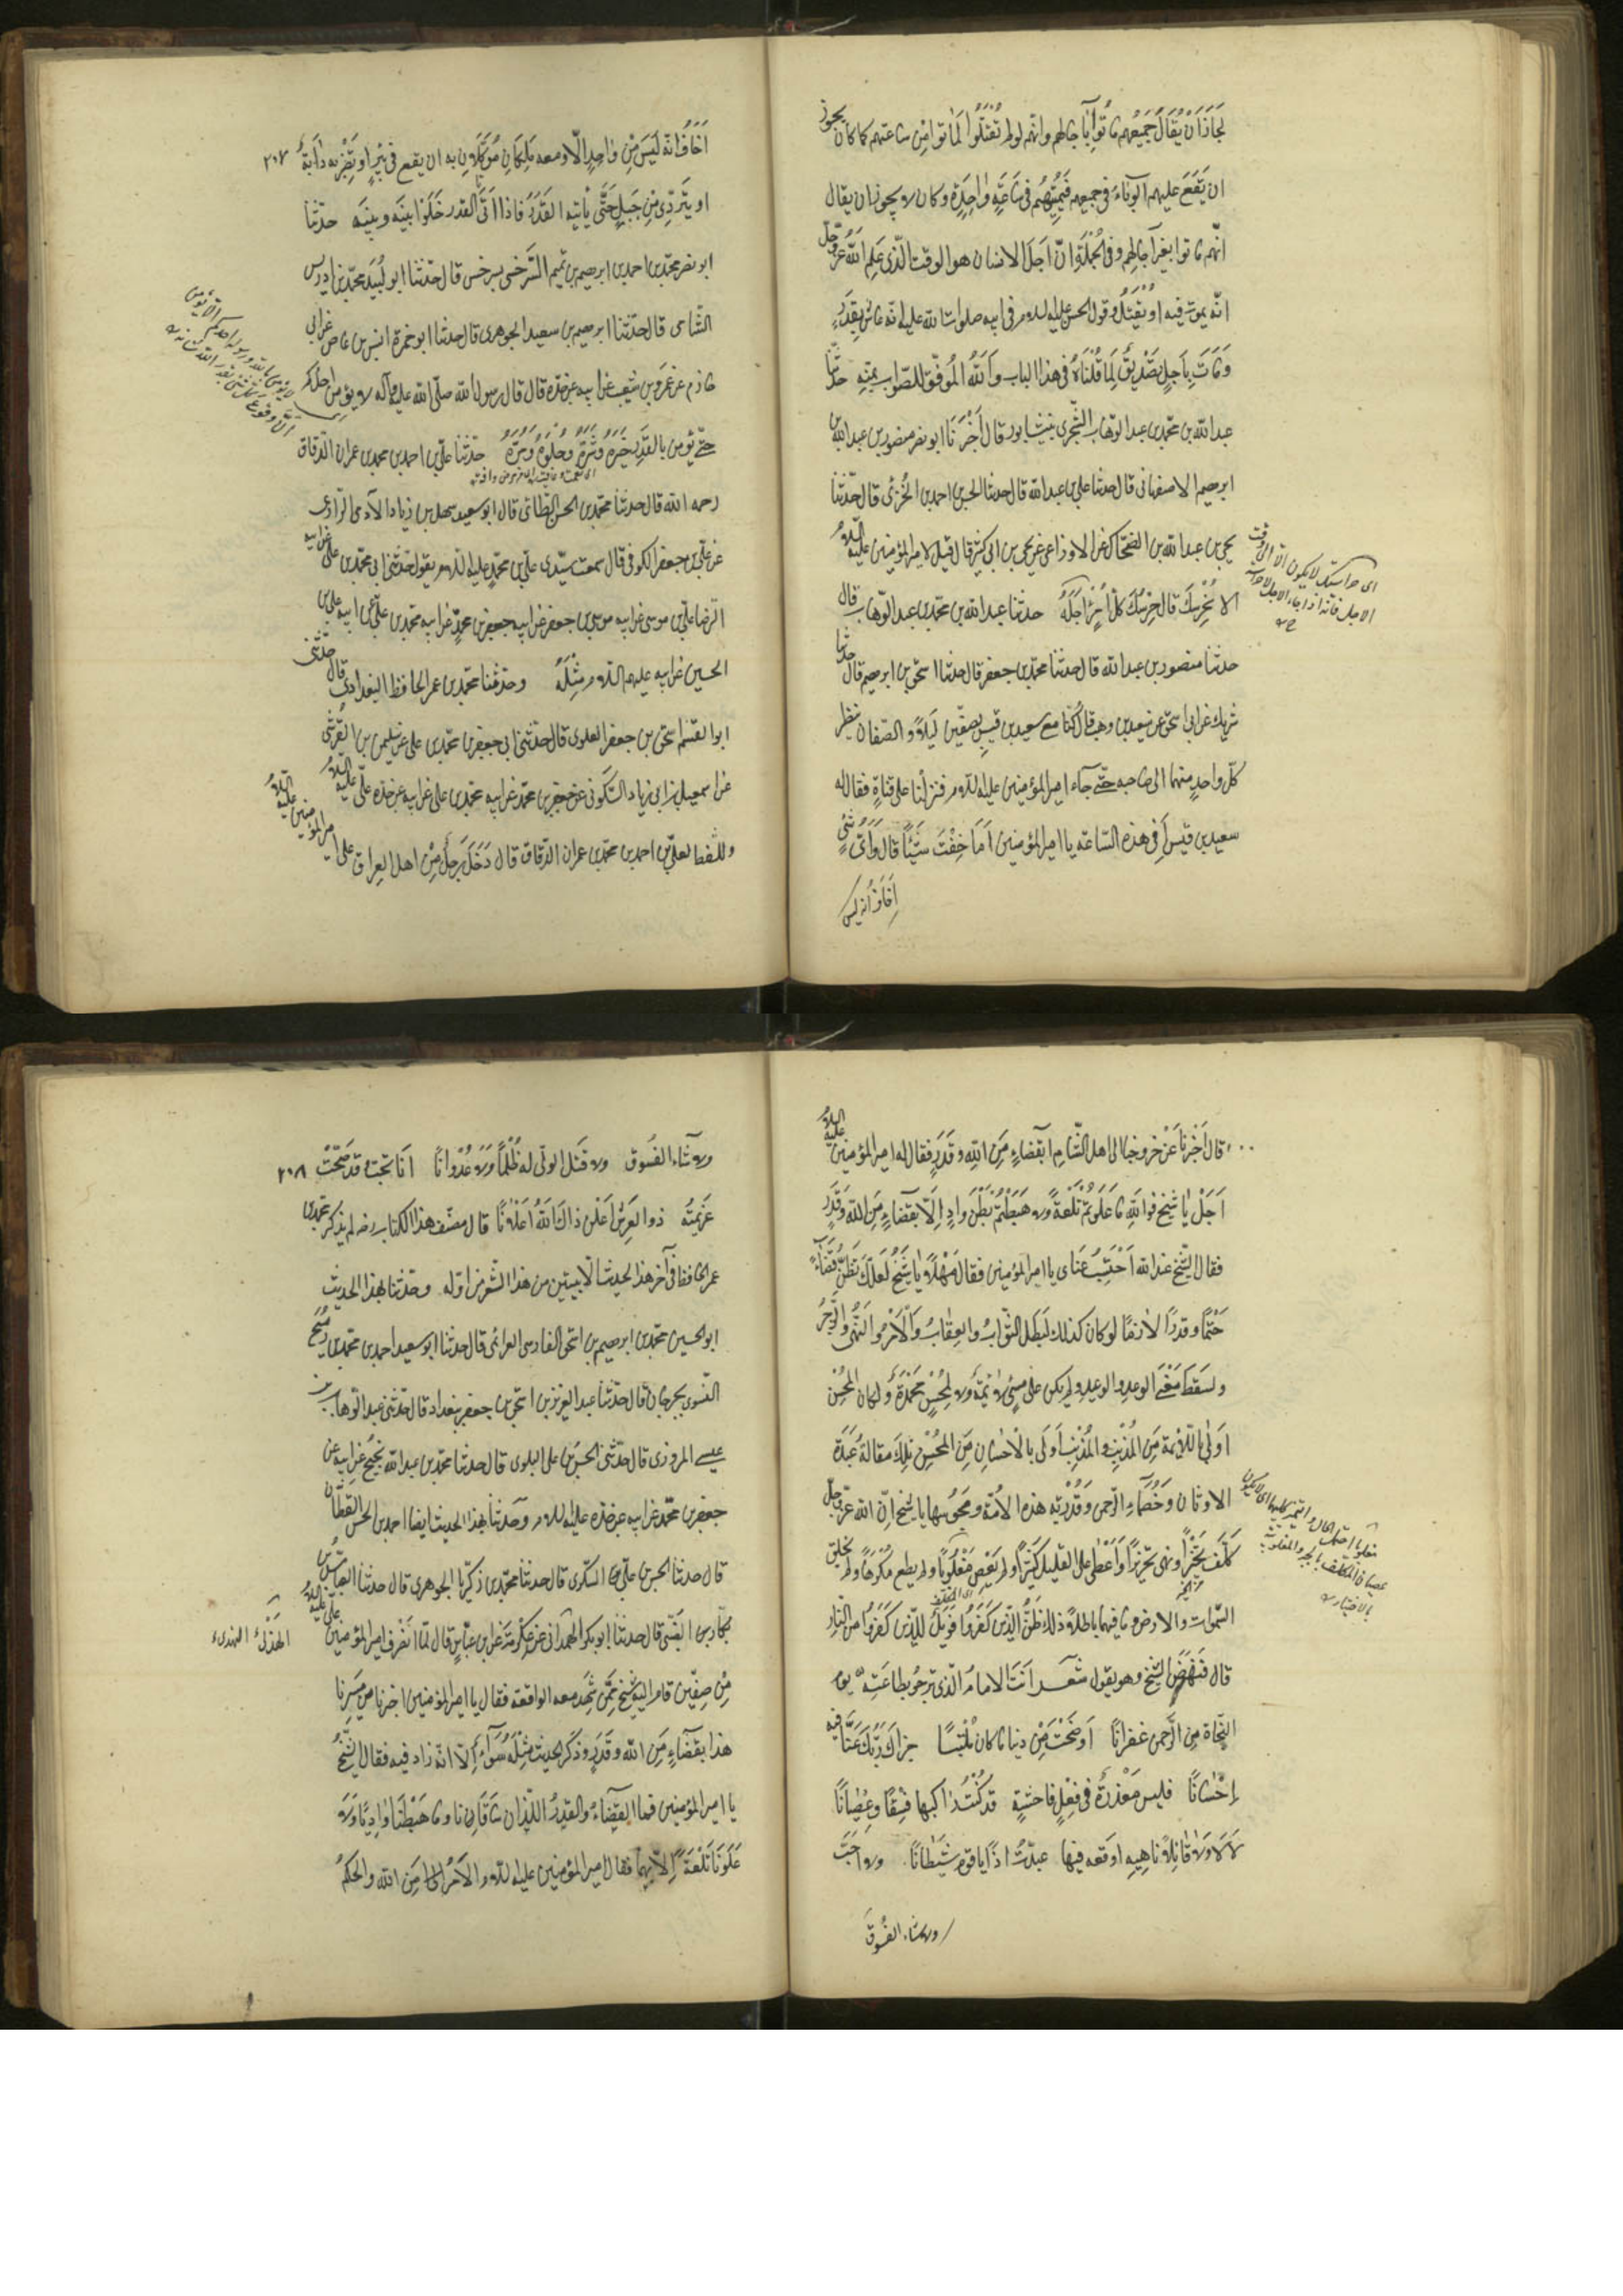 لَجَازَ اَنْ يُقَالَ جَمِيْعُهم مَاتُوا بآجالهم وانّهم لو لم تُقْتَلُوا لَمَاتوا مِنْ ساعتهم كما كان يجوز
ان يَقَعَ عليهم الوَباءُ فى جميعهم فَيُمِيْتَهُم فى سَاعَةٍ واحِدَةٍ وكان لا يجوز ان يقال
انّهم ماتوا بغير آجالهم وفى الجُمْلَةِ اِنّ اَجَلَ الانسان هو الوقت الّذى عَلِمَ اللّهُ عزّ وجلّ
انّه يموت فيه او يُقْتَلُ وقول الحسن عليه السلام فى ابيه صلوات الله عليه انّه عاش بِقَدَرٍ
وَمَاتَ بِاَجَلٍ تَصْدِيْقٌ لِمَا قُلْنَاهُ فى هذا الباب وَاللّهُ المُوَفّق للصّواب بمنّه حدّثنا
عبد الله بن محمّد بن عبد الوّهاب الشجرى بنيشابور قال اَخْبَرَنَا ابو نصر منصور بن عبد الله بن
ابرهيم الاصفهانى قال حدثنا على بن عبد الله قال حدثنا الحسن بن احمد الحُرّانى قال حدّثنا
يحيى بن عبد الله بن الضحّاك عن الاوزاعى عن يحيى بن ابى كثير قال قيل لامير المؤمنين عليه السّلام
الا نَحْرسكَ قال حَرَسُ كلّ امرئٍ اَجَلُهُ حدثنا عبد الله بن محمّد بن عبد الوّهاب قال
حدثنا منصور بن عبد الله قال حدثنا محمّد بن جعفر قال حدثنا اسحق بن ابرهيم قال حدثنا
شريك عن ابى اسحق عن سعيد بن وهب قال كُنّا مع سعيد بن قيس بصفّين لَيْلًا والصّفان ينظر
كلّ واحدٍ منهما الى صاحبه حتّى جآء امير المؤمنين عليه السلام فنزلنا على فناءٍ فقال له
سعيد بن قيس اَفِى هذه السّاعة يا امير المؤمنين اَمَا خِفْتَ شَيْئًا قال وَاَىُّ شَىْءٍ
اَخَافُ انه ليس
اى حراستك لا يكون الا الى وقت
الاجل فانه اذا جاء الاجل لا حراسة
٢٠٧
اَخَافُ انّه لَيْسَ مِنْ وَاحِدٍ الّا ومعه مَلَكَانِ مُوَكَّلانِ به ان يقع فى بِئْرٍ او تَضُرَّ به دَابّةٌ
او يَتَردّى مِنْ جَبَلٍ حَتّى يأتيه القَدَرُ فاذا اَتَى القدر خَلَّوا بينَه وبينَه حدّثنا
ابو نصر محمّد بن احمد بن ابرهيم بن تميم السَّرَخسى بسرخس قال حدّثنا ابو لُبيد محمّد بن ادريس
الشّامى قال حدّثنا ابرهيم بن سعيد الجوهرى قال حدثنا ابو ضمرة انس بن عياض عن ابى
حازم عن عَمْرو بن شعيب عن ابيه عن جدّه قال قال رسول الله صلّى الله عليه وآله لا يؤمن احدُكم
حتّى يؤمن بالقَدَرِ خَيْرِهِ وَشَرِّهِ وحُلْوِهِ وَمُرِّهِ حدّثنا علىّ بن احمد بن محمد بن عمران الدّقاق
رحمه الله قال حدثنا محمّد بن الحسن الطّائى قال ابو سعيد سهل بن زياد الآدمى الرّازى
عن علىّ بن جعفر الكوفى قال سمعت سيّدى علىّ بن محمّدٍ عليه السلام يقول حدّثنى ابى محمّد بن علىّ عن ابيه
الرّضا علىّ بن موسى عن ابيه موسى بن جعفر عن ابيه جعفر بن محمّدٍ عن ابيه محمّد بن علىّ عن ابيه علىّ بن
الحسين عن ابيه عليهم السلام مِثْلَهُ وحدّثنا محمّد بن عمر الحافظ البغدادى قال حدّثنى
ابو القسم اسحق بن جعفر العلوى قال حدّثنى ابى جعفر بن محمّد بن على عن سليمن بن القُرشى
عن اسمعيل بن ابى زياد السّكونى عن جعفر بن محمّد عن ابيه محمّد بن على عن ابيه عن جدّه علىّ عليه السّلام
واللّفظ لعلىّ بن احمد بن محمّد بن عمران الدّقاق قال دَخَلَ رَجلٌ مِنْ اهل العِراق على امير المؤمنين عليه السّلام
لا يؤمن بالله ورسوله احدكم الا يؤمن
قال اَخْبِرْنا عَنْ خروجنا الى اهل الشّام اَبِقَضاءٍ مِنَ اللّهِ وقَدَرٍ فقال له امير المؤمنين عليه السّلام
اَجَلْ يا شَيْخ فوا اللّهِ مَا عَلَوْتُمْ تَلْعَةً ولا هَبَطْتُمْ بَطْنَ وادٍ اِلّا بقَضاءٍ مِنَ اللّه وقَدَرٍ
فقال الشّيخ عند الله اَحْتَسِبُ عَنَاى يا امير المؤمنين فقال مَهْلًا يا شَيْخ لَعلّكَ تَظنّ قَضَاءً
حَتْمًا وقدرًا لازمًا لو كان كذلك لَبَطَلَ الثّوابُ والعِقابُ وَالْاَمْرُ والنّهىُ والزَّجْرُ
ولَسَقَطَ مَعْنَى الوعدِ والوعيد ولم يكن على مُسِئٍ لائمَةٌ ولا لِمُحْسِنٍ مَحْمَدَةٌ ولكان المُحْسِنُ
اَوْلى باللّائمة مِنَ المُذْنِبِ والمُذْنِبُ اَوْلَى بالْاِحْسَانِ مِنَ المُحْسِنِ تِلكَ مقالةُ عَبَدَةِ
الاوثان وَخُصَمَاءِ الرّحمن وَقَدَرِيّة هذه الاُمّة ومَجُوسِها يا شيخ اِنّ اللّه عزّ وجلّ
كَلّفَ تَخْيِيْرًا ونَهى تحْذِيْرًا وَاَعْطى على القَليل كَثِيْرًا ولم يُعْصَ مَغْلُوبًا ولم يطع مُكْرَهًا ولم يخلق
السّموات والارض وما فيهما باطلًا ذلك ظَنُّ الّذين كَفَرُوا فَوَيْلٌ للّذين كَفَرُوا من النّار
قال فَنَهَضَ الشّيخ وهو يقول شعر اَنْتَ الامامُ الّذى نرجُو بطاعَتِه يوم
النّجاة مِن الرّحمن غفرانًا اَوضَحْتَ مِنْ ديننا ما كان مُلْتَبِسًا جزاك ربّك عَنّا فيه
اِحْسَانًا فليس مَعْذِرَةٌ فى فِعْلِ فاحشةٍ قد كُنْتُ راكبها فِسْقًا وعِصْيانًا
لا لا ولا قائِلًا ناهِيهِ اوقعه فيها عبدْتُ اذًا يا قوم شَيْطَانًا ولا اَحَبّ
ولا شاء الفُسُوقَ
٢٠٨
ولا شَاءَ الفُسُوق ولا قَتل الولىّ له ظُلْمًا وَعُدْوانًا اَنّى يُحِبّ وقد صَحّتْ
عَزيمَتُه ذو العَرش اَعْلَن ذاك اللّهُ اِعْلانًا قال مصنّف هذا الكتاب رضه لم يذكر محمّد بن
عمر الحافظ فى آخر هذا الحديث الّا بيتين من هذا الشّعر من اوّله وحدّثنا بهذا الحديث
ابو الحسين محمّد بن ابرهيم بن اسحق الفارسى العزائمى قال حدثنا ابو سعيد احمد بن محمّد بن رُمَيْح
النّسوى بجرجان قال حدّثنا عبد العزيز بن اسحق بن جعفر ببغداد قال حدّثنى عبد الوّهاب بن
عيسى المروزى قال حدّثنى الحسن بن على البلوى قال حدثنا محمّد بن عبد الله بن نجيح عن ابيه عن
جعفر بن محمّد عن ابيه عن جدّه عليه السلام وحدثنا بهذا الحديث ايضا احمد بن الحسن القطّان
قال حدثنا الحسن بن علىّ السكرى قال حدثنا محمّد بن زكريّا الجوهرى قال حدثنا العبّاس بن
بكّار بن الضّبّى قال حدثنا ابو بكر الهذلى عن عِكْرمَة عن ابن عبّاسٍ قال لمّا انْصَرف امير المؤمنين علىّ عليه السّلام
مِنْ صِفّين قام اليه شيخ مِمّن شَهِد معه الواقعة فقال يا امير المؤمنين اخبرنا من مَسِيرنا
هذا بقَضاءٍ مِنَ اللّه وقَدَرٍ وذكَر الحديث مِثْلَهُ سَواء اِلّا انّه زاد فيه فقال الشّيْخُ
يا امير المؤمنين فما القَضَاءُ والقَدَرُ اللّذان سَاقَانَا وما هَبَطْنَا وادِيًا وَلا
عَلَوْنَا تَلْعَةً اِلّا بِهِمَا فقال امير المؤمنين عليه السلام الاَمْرُ مِنَ اللّه والحكمُ